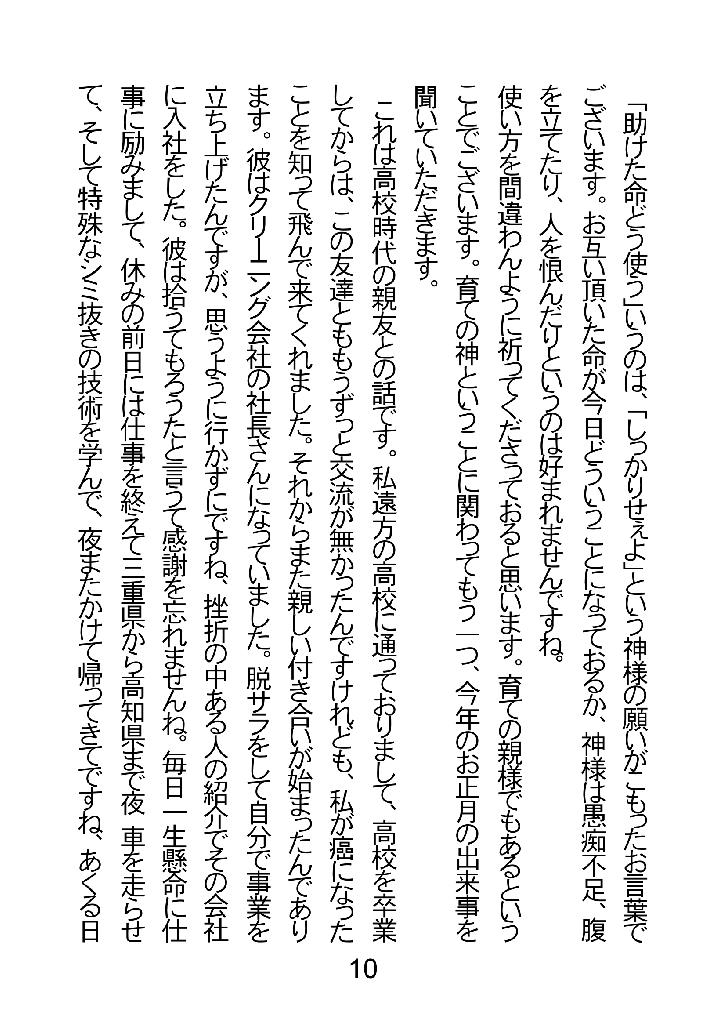 「助けた命どう使う」いうのは、「しっかりせぇよ」という神様の願いがこもったお言葉で
ございます。お互い頂いた命が今日どういうことになっておるか、神様は愚痴不足、腹
を立てたり、人を恨んだりというのは好まれませんですね。
使い方を間違わんように祈ってくださっておると思います。育ての親様でもあるという
ことでございます。育ての神ということに関わってもう一つ、今年のお正月の出来事を
聞いていただきます。
これは高校時代の親友との話です。私遠方の高校に通っておりまして、高校を卒業
してからは、この友達ともうずっと交流が無かったんですけれども、私が癌になった
ことを知って飛んで来てくれました。それからまた親しい付き合いが始まったんであり
ます。彼はクリーニング会社の社長さんになっていました。脱サラをして自分で事業を
立ち上げたんですが、思うように行かずにですね、挫折の中ある人の紹介でその会社
に入社をした。彼は拾うてもろうたと言うて感謝を忘れませんね。毎日一生懸命に仕
事に励みまして、休みの前日には仕事を終えて三重県から高知県まで夜 車を走らせ
て、そして特殊なシミ抜きの技術を学んで、夜またかけて帰ってきてですね、あくる日
10